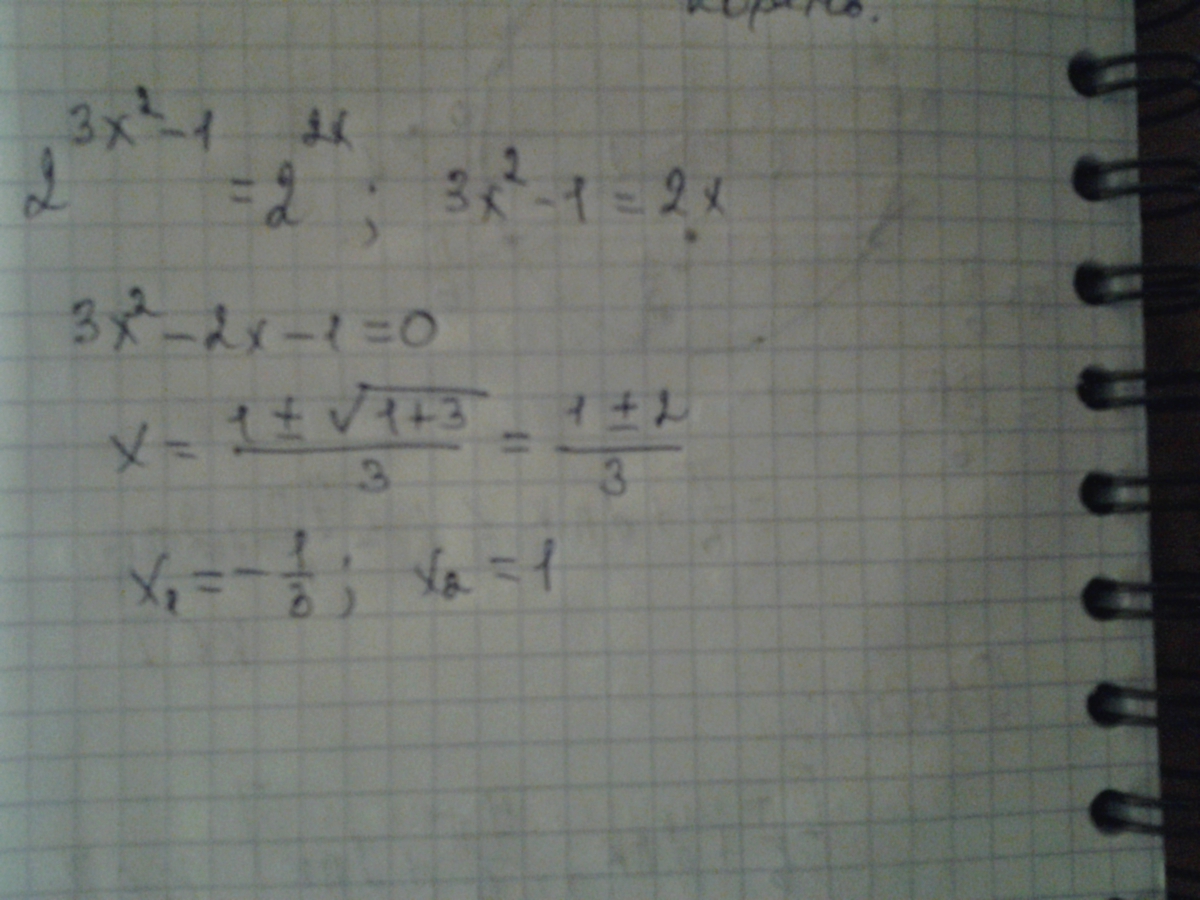 корень.
2^{3x^2-1} = 2^{2x} ; 3x^2 - 1 = 2x
3x^2 - 2x - 1 = 0
x = \frac{1 ± \sqrt{1+3}}{3} = \frac{1 ± 2}{3}
x_1 = -\frac{1}{3} ; x_2 = 1